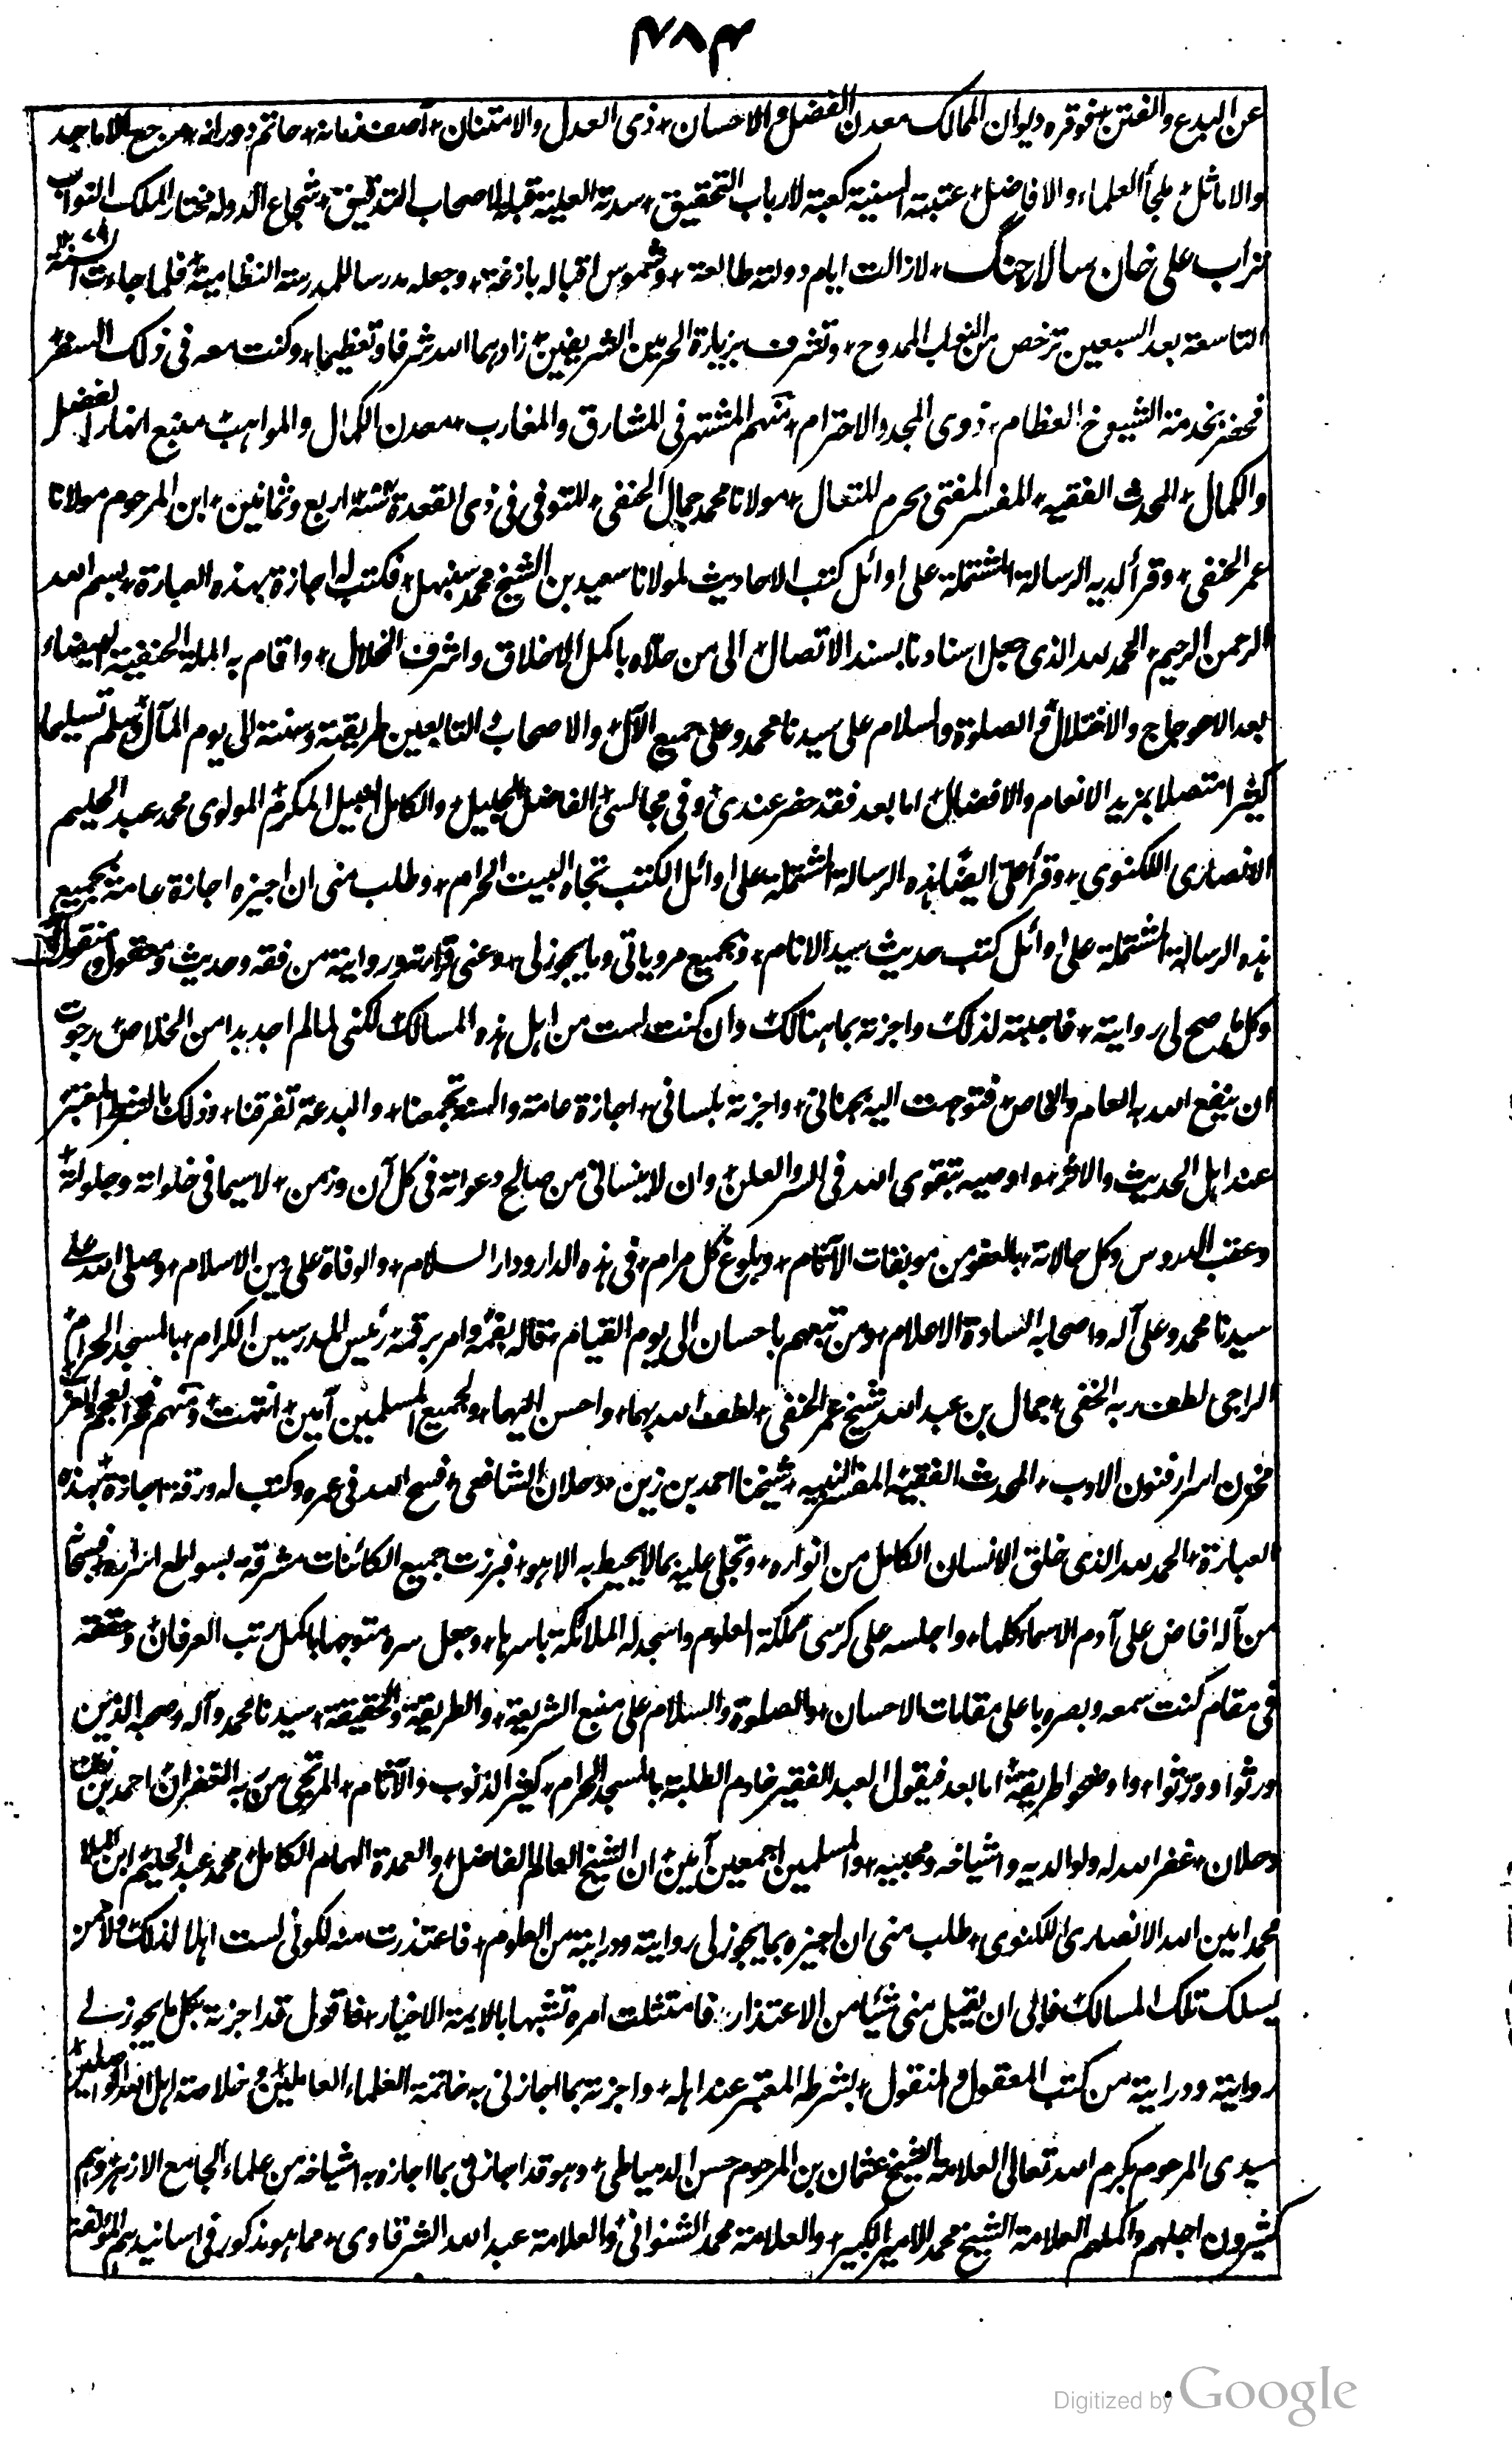 ۴۸۴
عن البدع والفتن٭ فوقره ديوان الممالك معدن الفضل والاحسان٭ ذى العدل والامتنان٭ آصف زمانه٭ حاتم دورانه٭ مرجع الاماجد
والاماثل٭ ملجأ العلماء والافاضل٭ عتبته السنية كعبة لارباب التحقيق٭ سدته العلية قبلة لاصحاب التدقيق٭ شجاع الدوله مختار الملك النواب
تراب على خان سالار جنگ٭ لازالت ايام دولته طالعة٭ وشموس اقباله بازغة٭ وجعله مدرسا للمدرسة النظامية٭ فلما جاءت السنة
التاسعة بعد السبعين ترخص من النواب الممدوح٭ وتشرف بزيارة الحرمين الشريفين٭ زادهما الله شرفا وتعظيما٭ وكنت معه فى ذلك السفر٭
فحضر بخدمة الشيوخ العظام٭ ذوى المجد والاحترام٭ منهم المشتهر فى المشارق والمغارب٭ معدن الكمال والمواهب٭ منبع انهار الفضل
والكمال٭ المحدث الفقيه٭ المفسر المفتى بحرم المتعال٭ مولانا محمد جمال الحنفى٭ المتوفى فى ذى القعدة سنة اربع وثمانين٭ ابن المرحوم مولانا
عمر الحنفى٭ وقرأ لديه الرسالة المشتملة على اوائل كتب الاحاديث لمولانا سعيد بن الشيخ محمد سنبل٭ فكتب له اجازة بهذه العبارة٭ بسم الله
الرحمن الرحيم٭ الحمد لله الذى جعل اسنادنا بسند الاتصال٭ الى من حلاه باكمل الاخلاق واشرف الخلال٭ واقام به الملة الحنفية البيضاء
بعد الاعوجاج والاختلال٭ والصلوة والسلام على سيدنا محمد وعلى جميع الآل٭ والاصحاب التابعين طريقته وسنته الى يوم المآل٭ وسلم تسليما
كثيرا متصلا بمزيد الانعام والافضال٭ اما بعد فقد حضر عندى٭ وفى مجالسى٭ الفاضل الجليل٭ والكامل النبيل المكرم٭ المولوى محمد عبد الحليم
الانصارى اللكنوى٭ وقرأ على ايضا هذه الرسالة المشتملة على اوائل الكتب تجاه البيت الحرام٭ وطلب منى ان اجيزه اجازة عامة بجميع
هذه الرسالة المشتملة على اوائل كتب حديث سيد الانام٭ وبجميع مروياتى وما يجوز لى٭ وعنى قراءته وروايته من فقه وحديث ومعقول ومنقول
وكل ما صح لى روايته٭ فاجبته لذلك واجزته بما هنالك٭ وان كنت لست من اهل هذه المسالك٭ لكنى لما لم اجد بدا من الخلاص٭ رجوت
ان ينفع الله به العام والخاص٭ فتوجهت اليه بجنانى٭ واجزته بلسانى٭ اجازة عامة والسنة تجمعنا٭ والبدعة تفرقنا٭ وذلك بالشرط المعتبر
عند اهل الحديث والاثر٭ واوصيه بتقوى الله فى السر والعلن٭ وان لا ينسانى من صالح دعواته فى كل آن وزمن٭ لاسيما فى خلواته وجلواته٭
وعقب الدروس وكل حالاته٭ بالعفو من موبقات الآثام٭ وبلوغ كل مرام٭ فى هذه الدار ودار السلام٭ والوفاة على دين الاسلام٭ وصلى الله على
سيدنا محمد وعلى آله واصحابه السادة الاعلام٭ ومن تبعهم باحسان الى يوم القيام٭ قاله بفمه وامر برقمه٭ رئيس المدرسين الكرام٭ بالمسجد الحرام٭
الراجى لطف ربه الخفى٭ جمال بن عبد الله شيخ عمر الحنفى٭ لطف الله بهما٭ واحسن اليهما٭ ولجميع المسلمين آمين٭ انتهت٭ ومنهم فخر العجم والعرب٭
مخزن اسرار فنون الادب٭ المحدث الفقيه٭ المفسر النبيه٭ شيخنا احمد بن زين دحلان الشافعى٭ فسح الله فى عمره وكتب له ورقة اجازة٭ بهذه
العبارة٭ الحمد لله الذى خلق الانسان الكامل من انواره٭ وتجلى عليه بما لا يحيط به الا هو٭ فبرزت جميع الكائنات مشرقة بسواطع اسراره٭ فسبحانه
من آله افاض على آدم الاسماء كلها٭ واجلسه على كرسى مملكة العلوم واسجد له الملائكة باسرها٭ وجعل سره متوجها باكمل رتب العرفان٭ وحققه
فى مقام كنت سمعه وبصره باعلى مقامات الاحسان٭ والصلوة والسلام على منبع الشريعة٭ والطريقة والحقيقة٭ سيدنا محمد وآله وصحبه الذين
ورثوا وورثوا٭ واوضحوا طريقه٭ اما بعد فيقول العبد الفقير خادم الطلبة بالمسجد الحرام٭ كثير الذنوب والآثام٭ المرتجى من ربه الغفران٭ احمد بن زين
دحلان٭ غفر الله له ولوالديه واشياخه ومحبيه٭ والمسلمين اجمعين آمين٭ ان الشيخ العالم الفاضل٭ والعمدة الهمام الكامل٭ محمد عبد الحليم٭ ابن الملا
محمد امين الله الانصارى اللكنوى٭ طلب منى ان اجيزه بما يجوز لى روايته ودرايته من العلوم٭ فاعتذرت منه لكونى لست اهلا لذلك٭ ولا ممن
يسلك تلك المسالك٭ فابى ان يقبل منى شيئا من الاعتذار٭ فامتثلت امره تشبها بالايمة الاخيار٭ فاقول قد اجزته بكل ما يجوز لى
روايته ودرايته من كتب المعقول والمنقول٭ بشرطه المعتبر عند اهله٭ واجزته بما اجازنى به خاتمة العلماء العاملين٭ وخلاصة اهل الله الواصلين٭
سيدى المرحوم بكرم الله تعالى العلامة الشيخ عثمان بن المرحوم حسن الدمياطى٭ وهو قد اجازنى بما اجازه به اشياخه من علماء الجامع الازهر٭ وهم
كثيرون اجلهم واكملهم العلامة الشيخ محمد الامير الكبير٭ والعلامة محمد الشنوانى٭ والعلامة عبد الله الشرقاوى٭ مما هو مذكور فى اسانيدهم المؤلفة
Digitized by Google